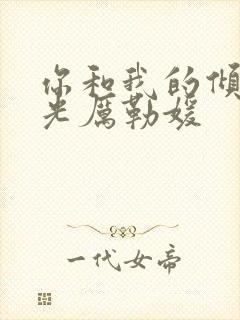 你和我的倾
光厲勒媛
一代女帝